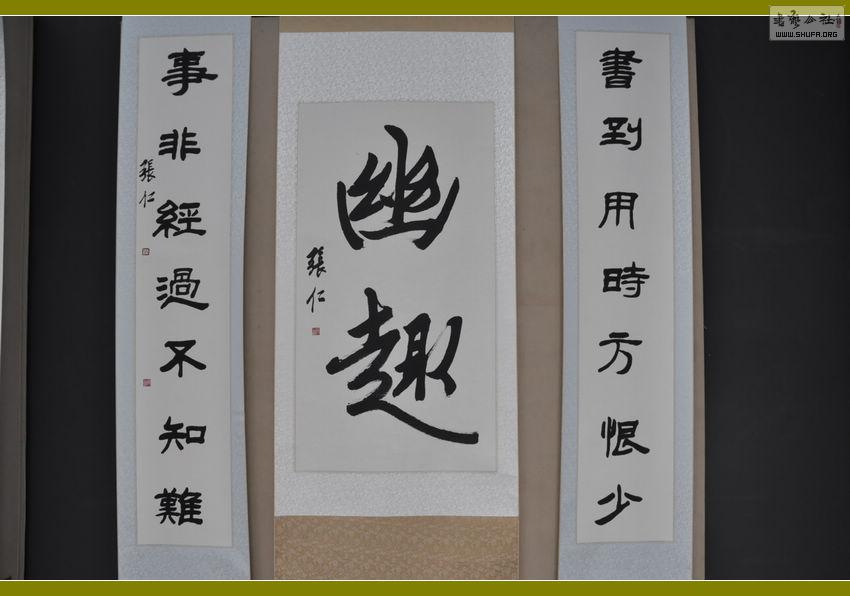 書到用時方恨少
幽趣
張仁
事非經過不知難
張仁
書藝公社
WWW.SHUFA.ORG